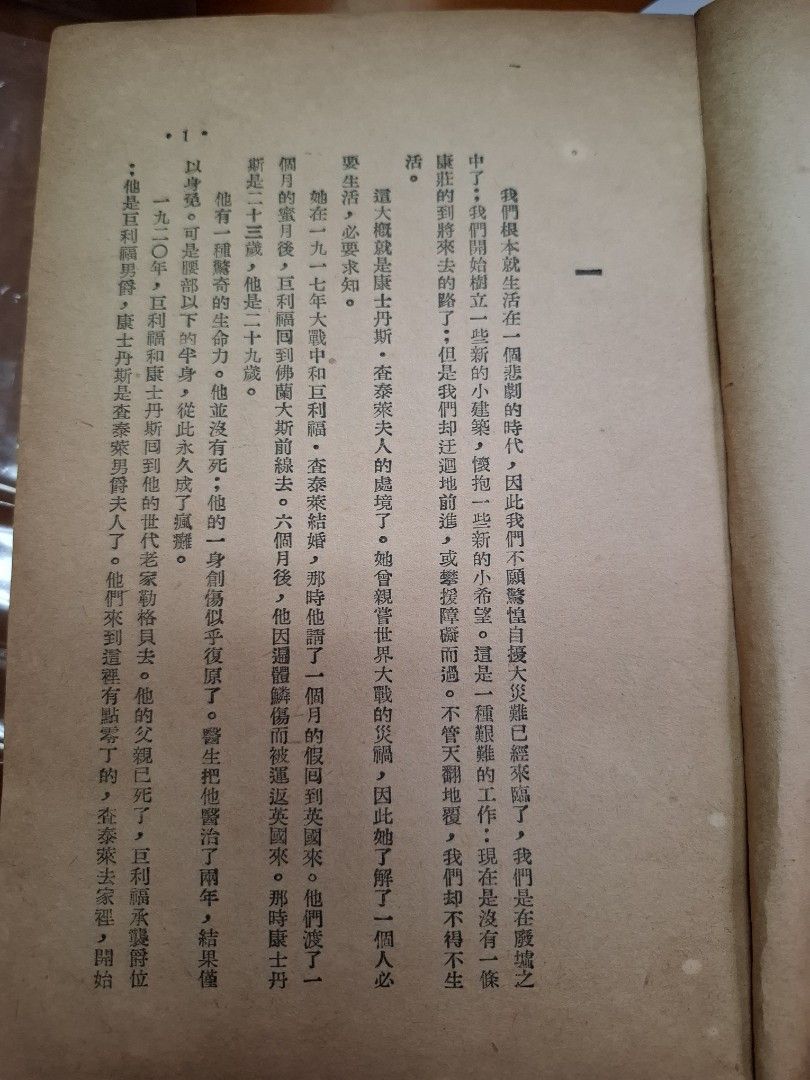 一
我們根本就生活在一個悲劇的時代，因此我們不願驚惶自擾大災難已經來臨了，我們是在廢墟之
中了；我們開始樹立一些新的小建築，懷抱一些新的小希望。這是一種艱難的工作：現在是沒有一條
康莊的到將來去的路了；但是我們却迂迴地前進，或攀援障礙而過。不管天翻地覆，我們却不得不生
活。
這大概就是康士丹斯·查泰萊夫人的處境了。她曾親嘗世界大戰的災禍，因此她了解了一個人必
要生活，必要求知。
她在一九一七年大戰中和巨利福·查泰萊結婚，那時他請了一個月的假囘到英國來。他們渡了一
個月的蜜月後，巨利福囘到佛蘭大斯前線去。六個月後，他因遍體鱗傷而被運返英國來。那時康士丹
斯是二十三歲，他是二十九歲。
他有一種驚奇的生命力。他並沒有死；他的一身創傷似乎復原了。醫生把他醫治了兩年，結果僅
以身免。可是腰部以下的半身，從此永久成了瘋癱。
一九二〇年，巨利福和康士丹斯囘到他的世代老家勒格貝去。他的父親已死了，巨利福承襲爵位
；他是巨利福男爵，康士丹斯是查泰萊男爵夫人了。他們來到這裡有點零丁的，查泰萊去家裡，開始
·1·